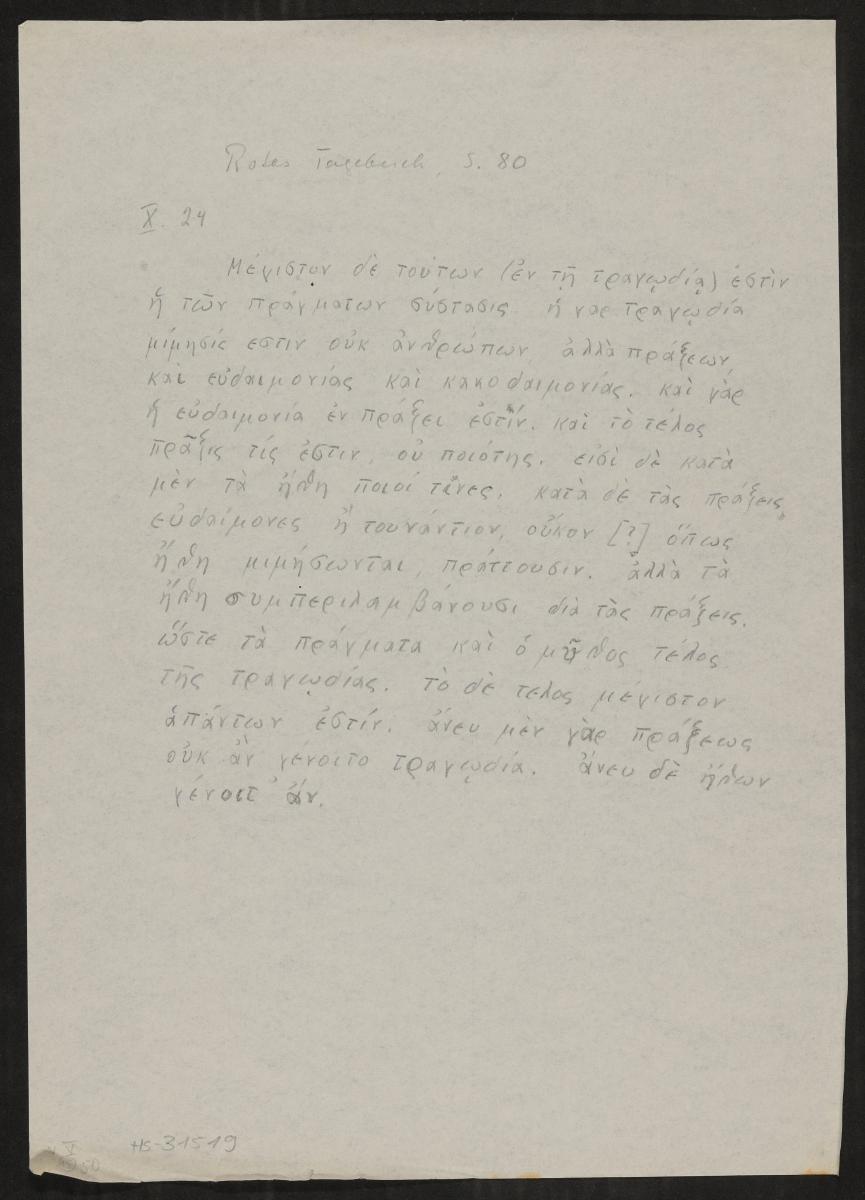 Rotes Tagebuch, S. 80
X. 24
Μέγιστον δὲ τούτων (ἐν τῇ τραγῳδίᾳ) ἐστὶν
ἡ τῶν πράγματων σύστασις. ἡ γαρ τραγῳδία
μίμησίς εστιν οὐκ ἀνθρώπων, ἀλλὰ πράξεων
καὶ εὐδαιμονίας καὶ κακοδαιμονίας. καὶ γὰρ
ἡ εὐδαιμονία ἐν πράξει ἐστίν. καὶ τὸ τέλος
πρᾶξις τίς ἐστιν, οὐ ποιότης. εἰσὶ δὲ κατὰ
μὲν τὰ ἤθη ποιοί τινες. κατὰ δὲ τὰς πράξεις
εὐδαίμονες ἢ τουνάντιον, οὔκον [?] ὅπως
ἤθη μιμήσωνται, πράττουσιν. ἀλλὰ τὰ
ἤθη συμπεριλαμβάνουσι διὰ τὰς πράξεις.
ὥστε τὰ πράγματα καὶ ὁ μῦθος τέλος
τῆς τραγῳδίας. τὸ δὲ τελος μέγιστον
ἁπάντων ἐστίν. ἄνευ μὲν γὰρ πράξεως
οὐκ ἂν γένοιτο τραγῳδία. ἄνευ δὲ ἠθων
γένοιτ' ἄν.
HS-31519